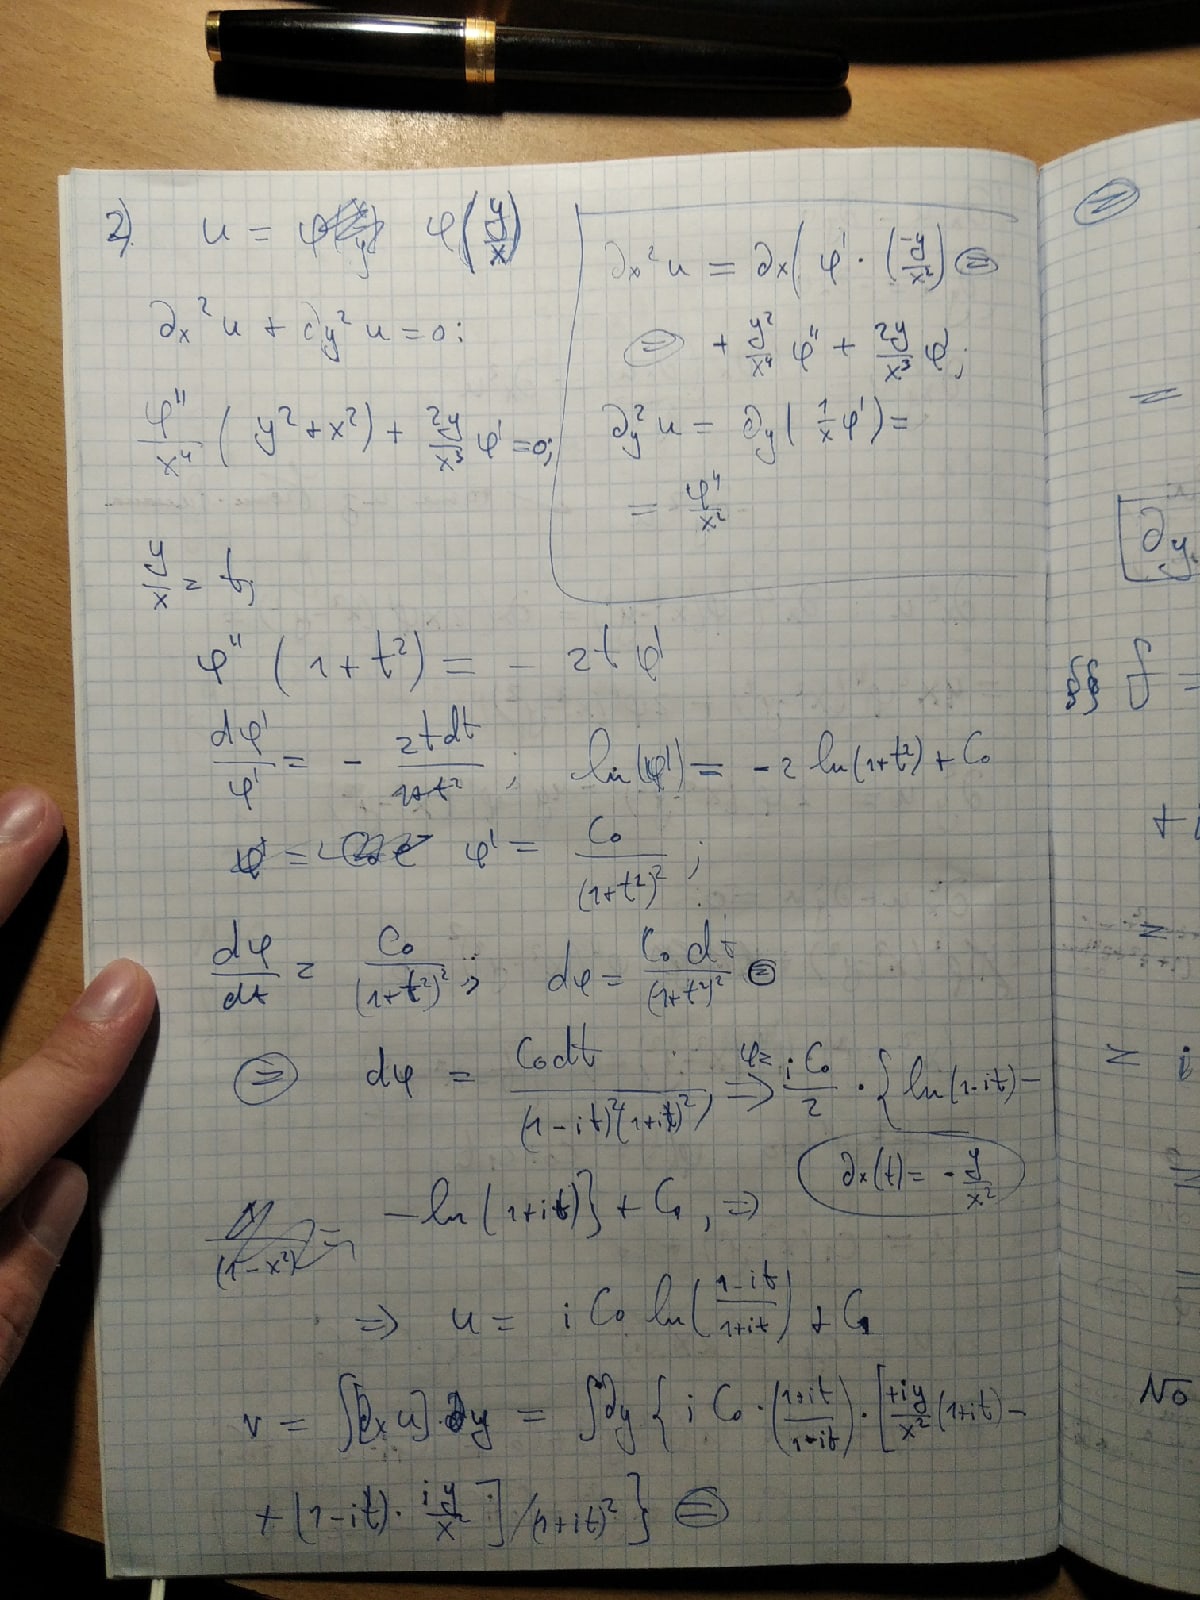 2) u = φ(y/x)
∂x²u + ∂y²u = 0;
φ''/x⁴ (y² + x²) + 2y/x³ φ' = 0;
∂x²u = ∂x( φ' · (-y/x²) ⊜
⊜ + y²/x⁴ φ'' + 2y/x³ φ;
∂y²u = ∂y( 1/x φ') =
= φ''/x²
y/x = t,
φ'' (1+t²) = - 2t φ'
dφ'/φ' = - 2tdt/1+t² ; ln(φ') = -2 ln(1+t²) + C₀
φ' = C₀/(1+t²)² ;
dφ/dt = C₀/(1+t²)² ; dφ = C₀ dt/(1+t²)² ⊜
⊜ dφ = C₀dt/(1-it)²(1+it)² ⇒ φ= iC₀/2 · { ln(1-it) -
∂x(t) = - y/x²
- ln(1+it)} + C₁, ⇒
⇒ u = i C₀ ln(1-it/1+it) + C₁
v = ∫[∂x u] ∂y = ∫∂y { i C₀ · (1+it/1-it) · [+iy/x² (1+it) -
+ (1-it) · iy/x² ] /(1+it)² } ⊜
∂y
No